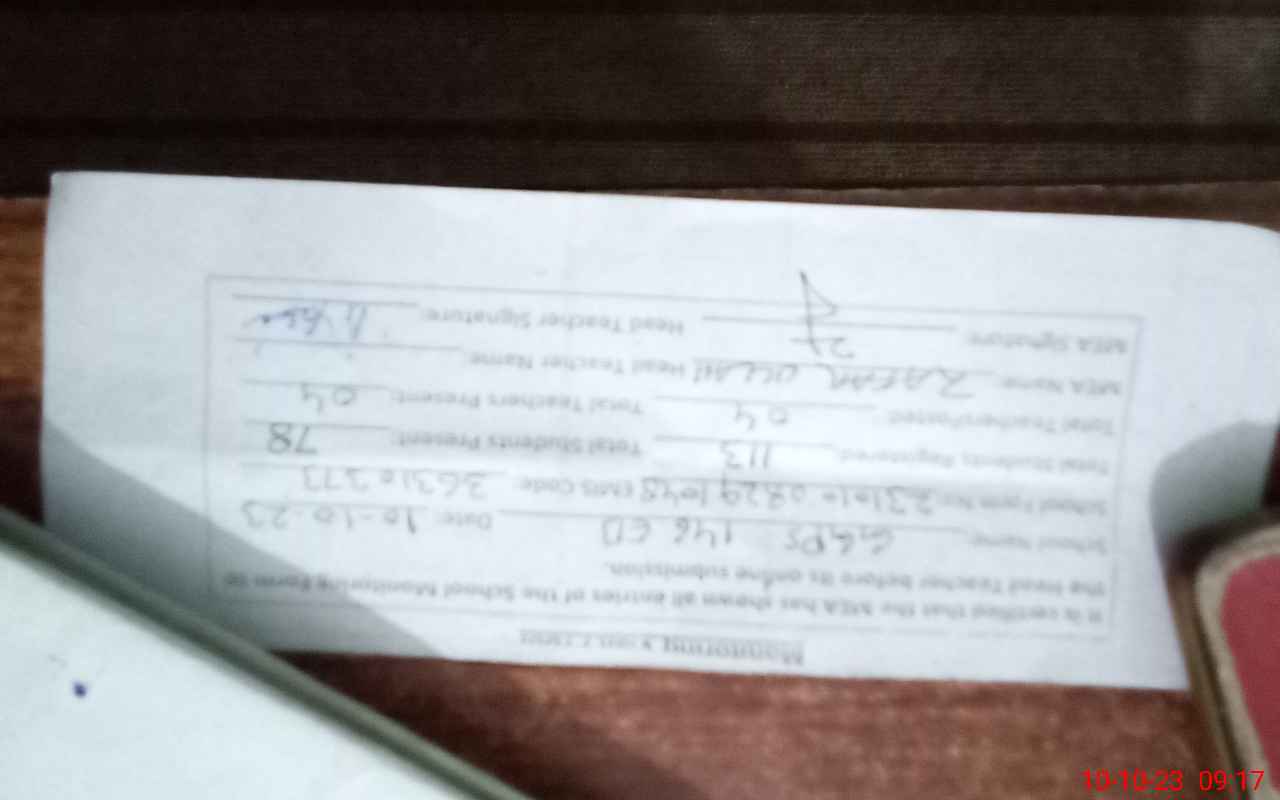 Monitoring
It is certified that the MEA has shown all entries of the School Monitoring Form to
the Head Teacher before its online submission.
School Name: GGPS 146 EB Date: 10-10-23
School Form No: EMIS Code: 36310373
Total Students Registered: 113 Total Students Present: 78
Total Teachers Posted: 04 Total Teachers Present: 04
MEA Name: ZAFAR ULLAH Head Teacher Name:
MEA Signature: Head Teacher Signature:
10-10-23 09:17